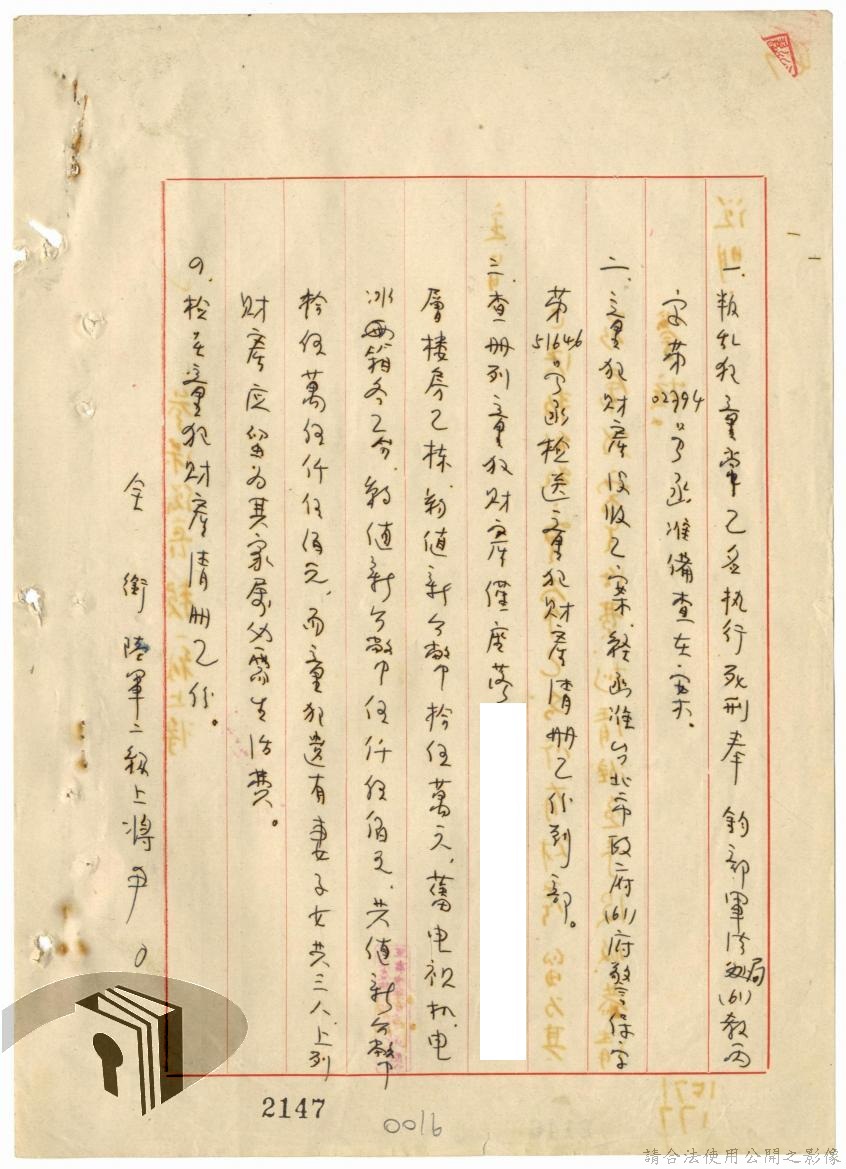 一、叛乱犯童常乙名执行死刑奉 鈞部軍法局(61)教丙
字第02394号函准備查在案。
二、童犯財產没收乙案、经函准台北市政府(61)府警保字
第51646号函检送童犯財產清册乙份到部。
三、查册列童犯財產僅座落
層楼房乙栋、約值新台幣拾伍萬元，舊电視机、电
冰箱各乙台、約值新台幣伍仟伍佰元、共值新台幣
拾伍萬伍仟伍佰元，而童犯遗有妻子女共三人、上列
財產应留为其家属必需生活費。
四、检呈童犯財產清册乙份。
全銜 陸軍二級上將 尹
2147
0016
請合法使用公開之影像